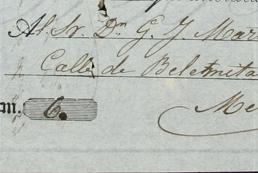 Al Sr. Dn G. Y. Mar
Calle de Belemita
Me
m. 6.